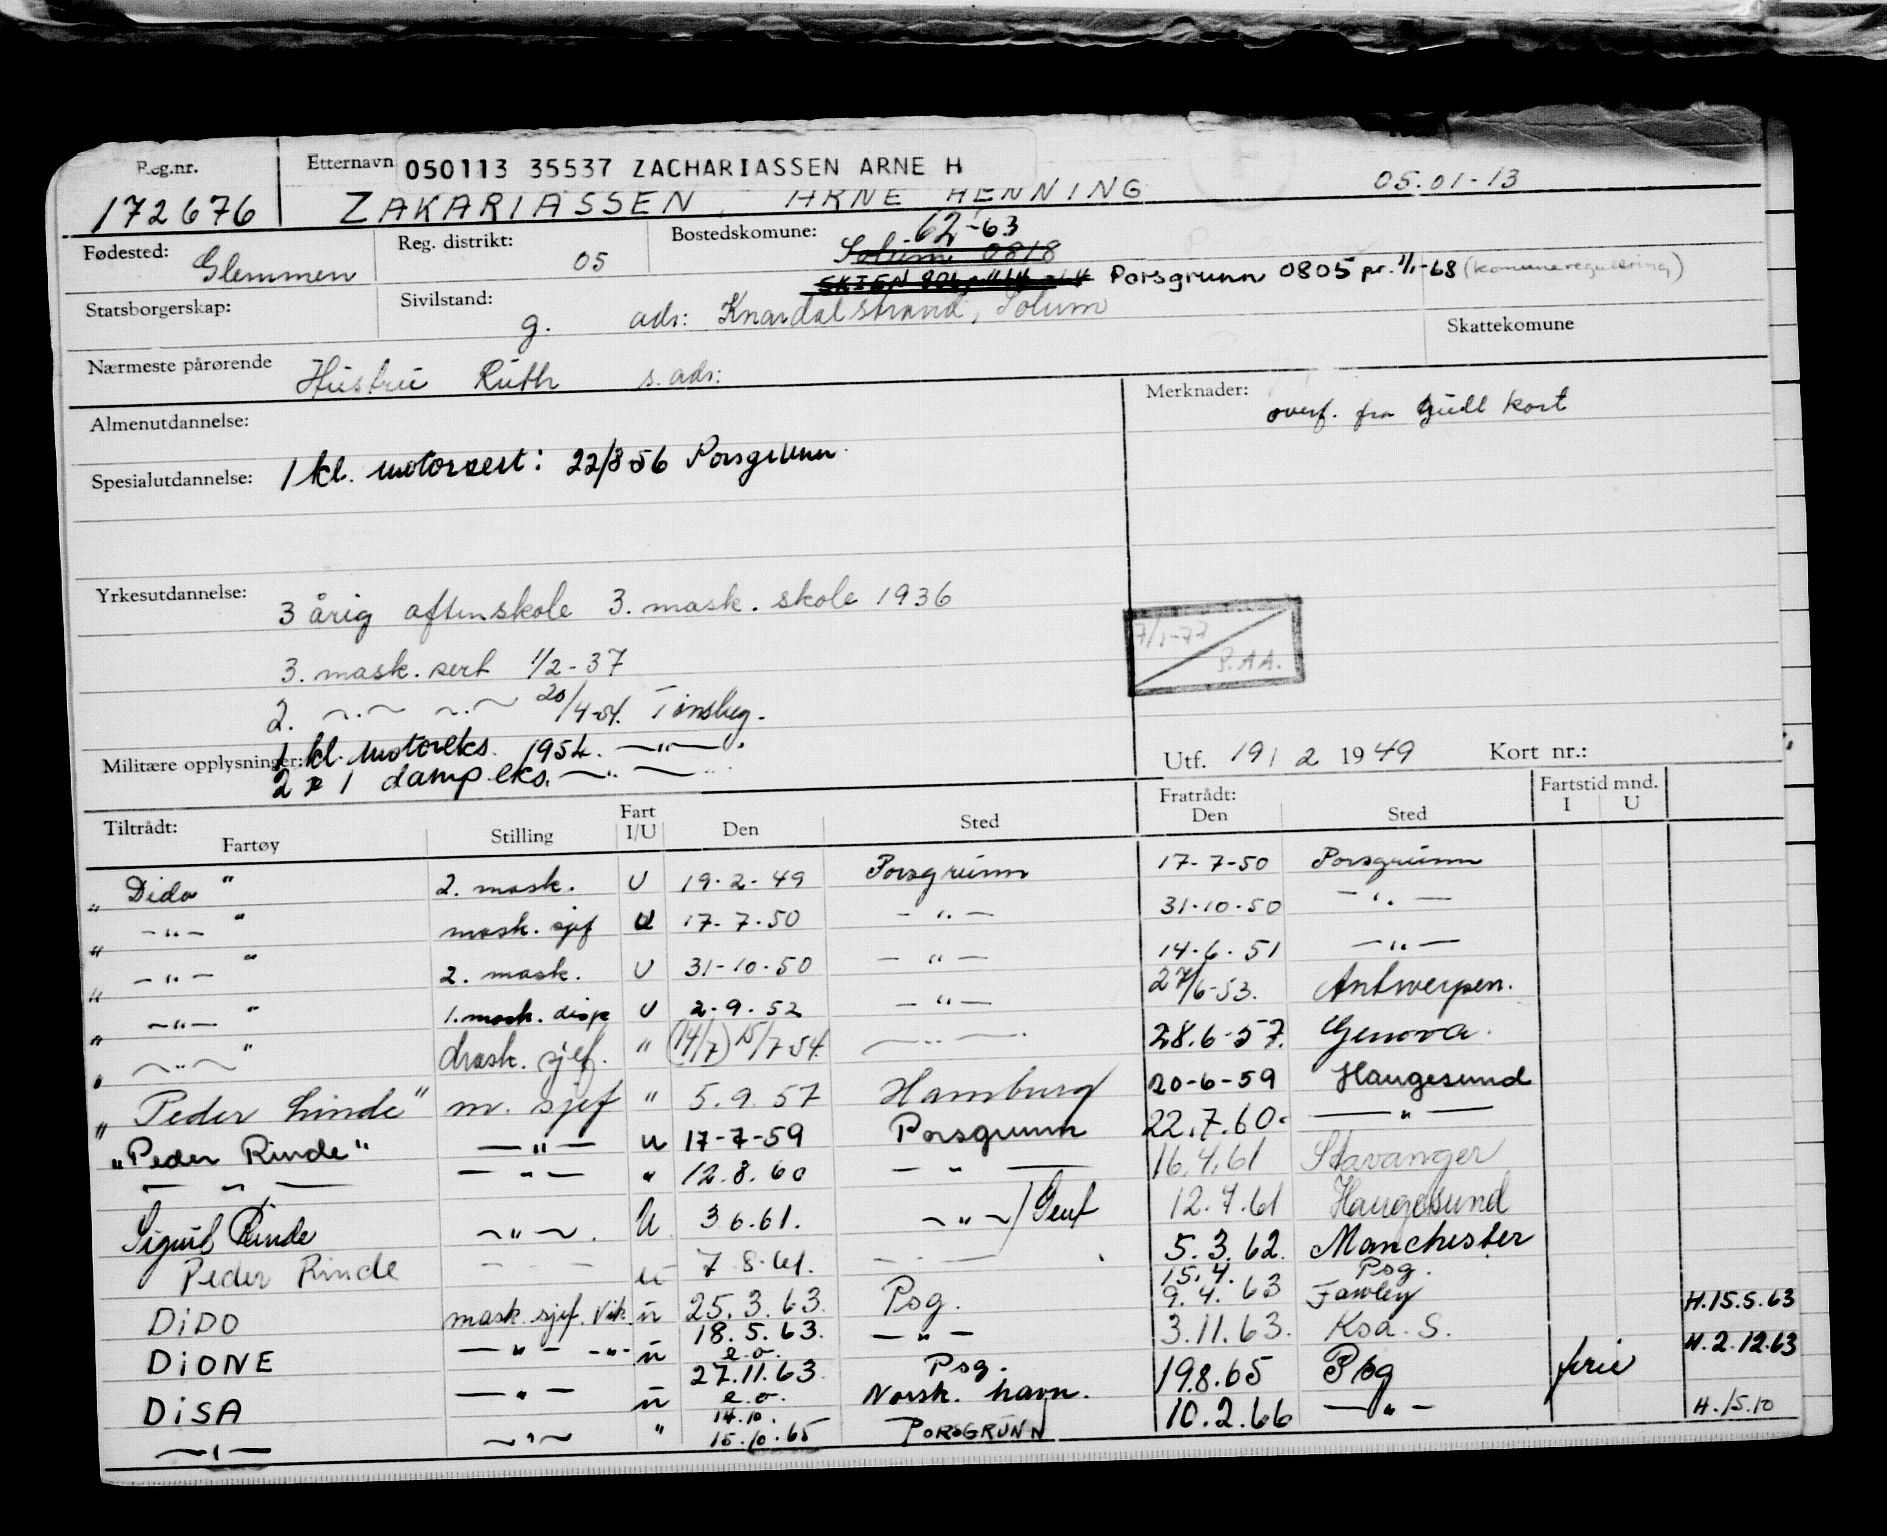 Reg.nr. Etternavn 050113 35537 ZACHARIASSEN ARNE H
172676 ZAKARIASSEN, ARNE HENNING 05.01-13
Fødested: Glemmen Reg. distrikt: 05 Bostedskomune: 62-63
Solum 0818
Porsgrunn 0805 pr. 1/1-68 (komuneregulering)
Statsborgerskap: Sivilstand: g. adr: Knardalstrand, Solum
Skattekomune
Nærmeste pårørende Hustru Ruth s. adr:
Almenutdannelse: Merknader: overf. fra Gult kort
Spesialutdannelse: 1 kl. motorsert: 22/8 56 Porsgrunn
Yrkesutdannelse: 3 årig aftenskole 3. mask. skole 1936
7/1-77
P.AA.
3. mask. sert 1/2-37
2. —.— —.— 20/4-54. Tønsbeg.
1 kl. motoreks. 1954. —"—.
Militære opplysninger: 2 1 damp eks. —"—
Utf. 19/ 2 1949 Kort nr.:
Tiltrådt: Fartøy Stilling Fart I/U Den Sted Fratrådt: Den Sted Fartstid mnd. I U
"Dido" 2. mask. U 19-2-49 Porsgrunn 17-7-50 Porsgrunn
" —"— " mask. sjef U 17-7-50 —"— 31-10-50 —"—
" —"— " 2. mask. U 31-10-50 —"— 14-6-51 —"—
" —"— " 1. mask. disp U 2-9-52 —"— 27/6-53. Antwerpen.
" —"— " mask. sjef. " (14/7) 15/7 54. —"— 28.6-57. Genova.
"Peder Rinde" m. sjef " 5.9.57 Hamburg 20-6-59 Haugesund
"Peder Rinde" —"— u 17-7-59 Porsgrunn 22.7.60. —"—
—"— —"— " 12.8.60 —"— 16.4.61 Stavanger
Sigurd Rinde —"—. U 3 6.61. —"—/Gent 12.7.61 Haugesund
Peder Rinde — — u 7 8.61. — — 5.3.62. Manchester
15.4. Psg.
DiDO mask. sjef. Vik. u 25.3.63. Psg. 9.4.63 Fawley H.15.5.63
DiONE —"— —"— u 18.5.63. e.o. —"— 3.11.63. Ksa. S. H.2.12.63
DiSA —"— u 27.11.63. e.o. Psg. Norsk. havn. 19.8.65 Psg
—"— —"— " 14.10. 15.10.65 PORSGRUNN 10.2.66 —"— H.15.10